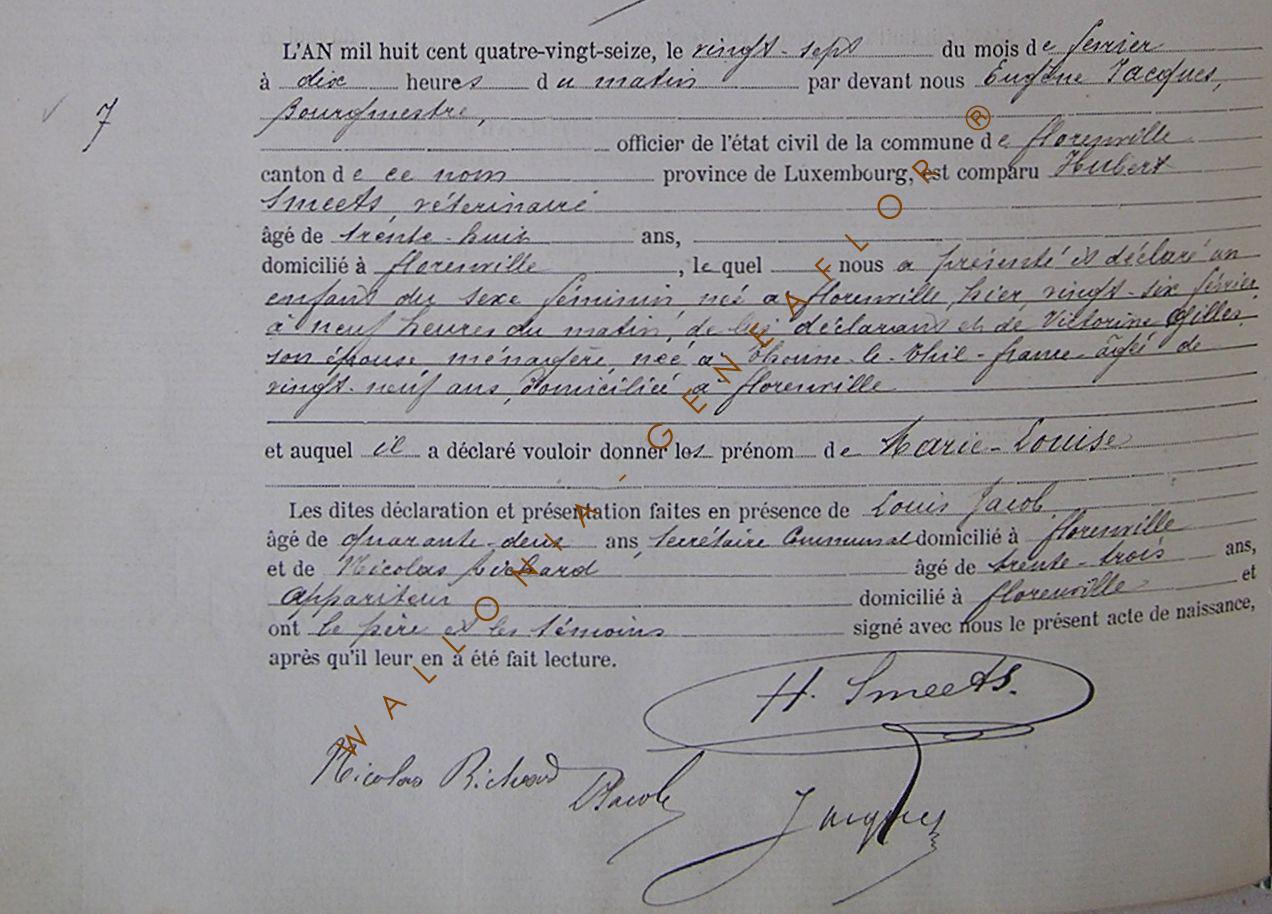 L'AN mil huit cent quatre-vingt-seize, le vingt-sept du mois de février
à dix heures du matin par devant nous Eugène Jacques,
Bourgmestre,
officier de l'état civil de la commune de florenville
canton de ce nom province de Luxembourg, est comparu Hubert
Smeets, véterinaire
7
âgé de trente-huit ans,
domicilié à florenville, lequel nous a présenté et déclaré un
enfant du sexe féminin, née à florenville, hier vingt-six février
à neuf heures du matin, de lui déclarant et de Victorine Gilles,
son épouse, ménagère, née à Thonne-le-Thil-france âgée de
vingt-neuf ans, domiciliée à florenville
et auquel il a déclaré vouloir donner les prénom de Marie-Louise
Les dites déclaration et présentation faites en présence de Louis Jacob,
âgé de quarante-deux ans, secrétaire Communal domicilié à florenville
et de Nicolas Richard âgé de trente-trois ans,
appariteur domicilié à florenville et
ont le père et les témoins signé avec nous le présent acte de naissance,
après qu'il leur en a été fait lecture.
H. Smeets.
Nicolas Richard Jacob
Jacques
WALLONIA-GENEAFLOR ®